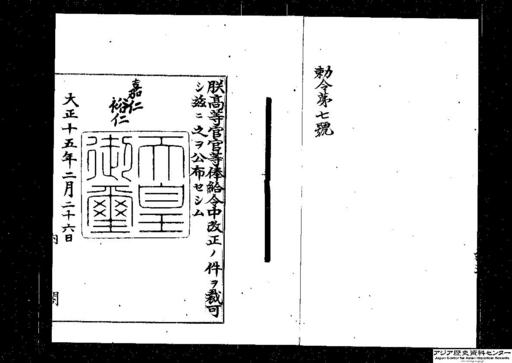 勅令第七號
朕高等官官等俸給令中改正ノ件ヲ裁可
シ茲ニ之ヲ公布セシム
嘉仁
裕仁
天皇
御璽
大正十五年二月二十六日
内閣
アジア歴史資料センター
Japan Center for Asian Historical Records